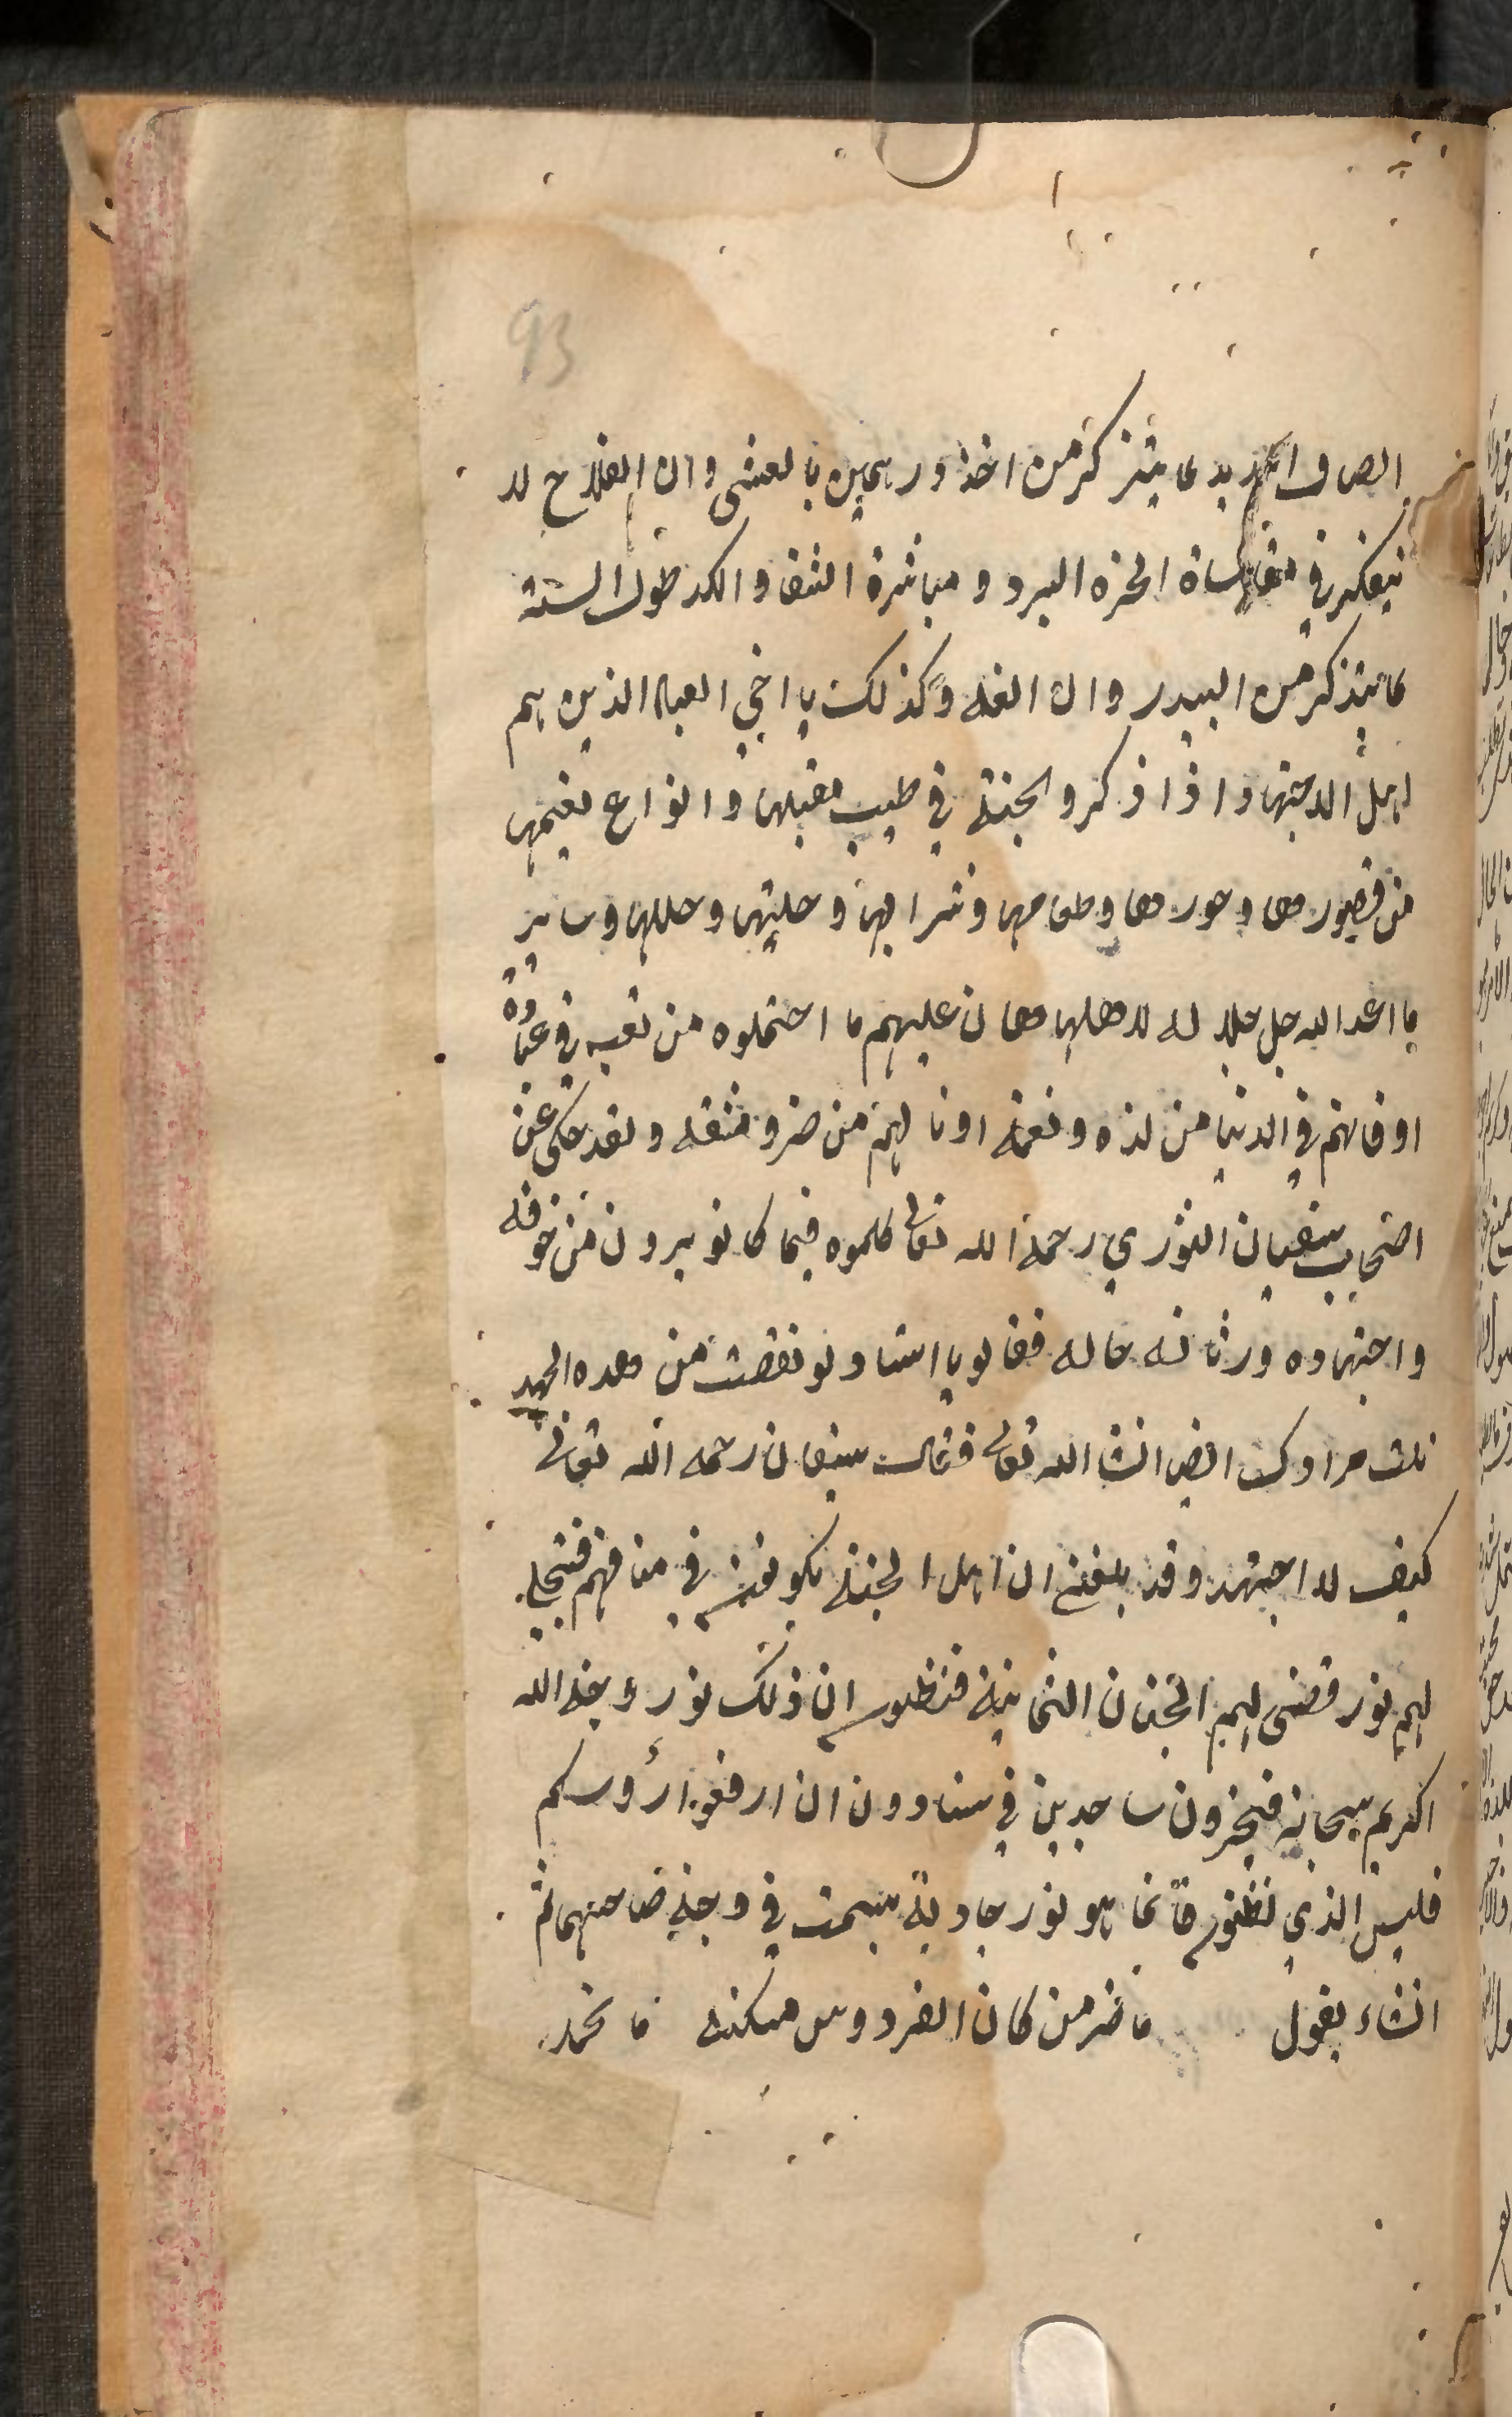 93
الصاف المديد لما يتذكر من اخذ درهمين بالعشى وان الفلاح لا
يتفكر في مقاساة الحره البرد و مباشرة الشقا والكد طول السنة
لما يتذكر من البيدر وان الغله وكذلك يا اخي العباد الذين هم
اهل الاجتهاد اذا ذكروا الجنة في طيب مقيلها وانواع نعيمها
من قصورها وحورها وطعامها وشرابها وحليتها وحللها وساير
ما اعد الله جل جلاله لاهلها هان عليهم ما احتملوه من تعب في عبادة
او فاتهم في الدنيا من لذه ونعمة او نالهم من ضر ومشقه ولقد حكى عن
اصحاب سفيان الثوري رحمة الله تعالى كلموه فيما كانو يرون من خوفه
واجتهاده ورثاثه حاله فقالو يا استاد لو نقصت من هده الجهد
نلت مرادك ايض انشا الله تعالى فقال سفيان رحمه الله تعالى
كيف لا اجتهد وقد بلغني ان اهل الجنة يكونون في منازلهم فيتجلى
لهم نور تضى لهم الجنان الثمانية فيظنون ان ذلك نور وجه الله
اكريم سبحانه فيخرون ساجدين في سنادون ان ارفعوا رؤسكم
فليس الذي تظنون انما هو نور جارية تبسمت في وجه صاحبها ثم
انشاء يقول ما ضر من كان الفردوس مسكنه